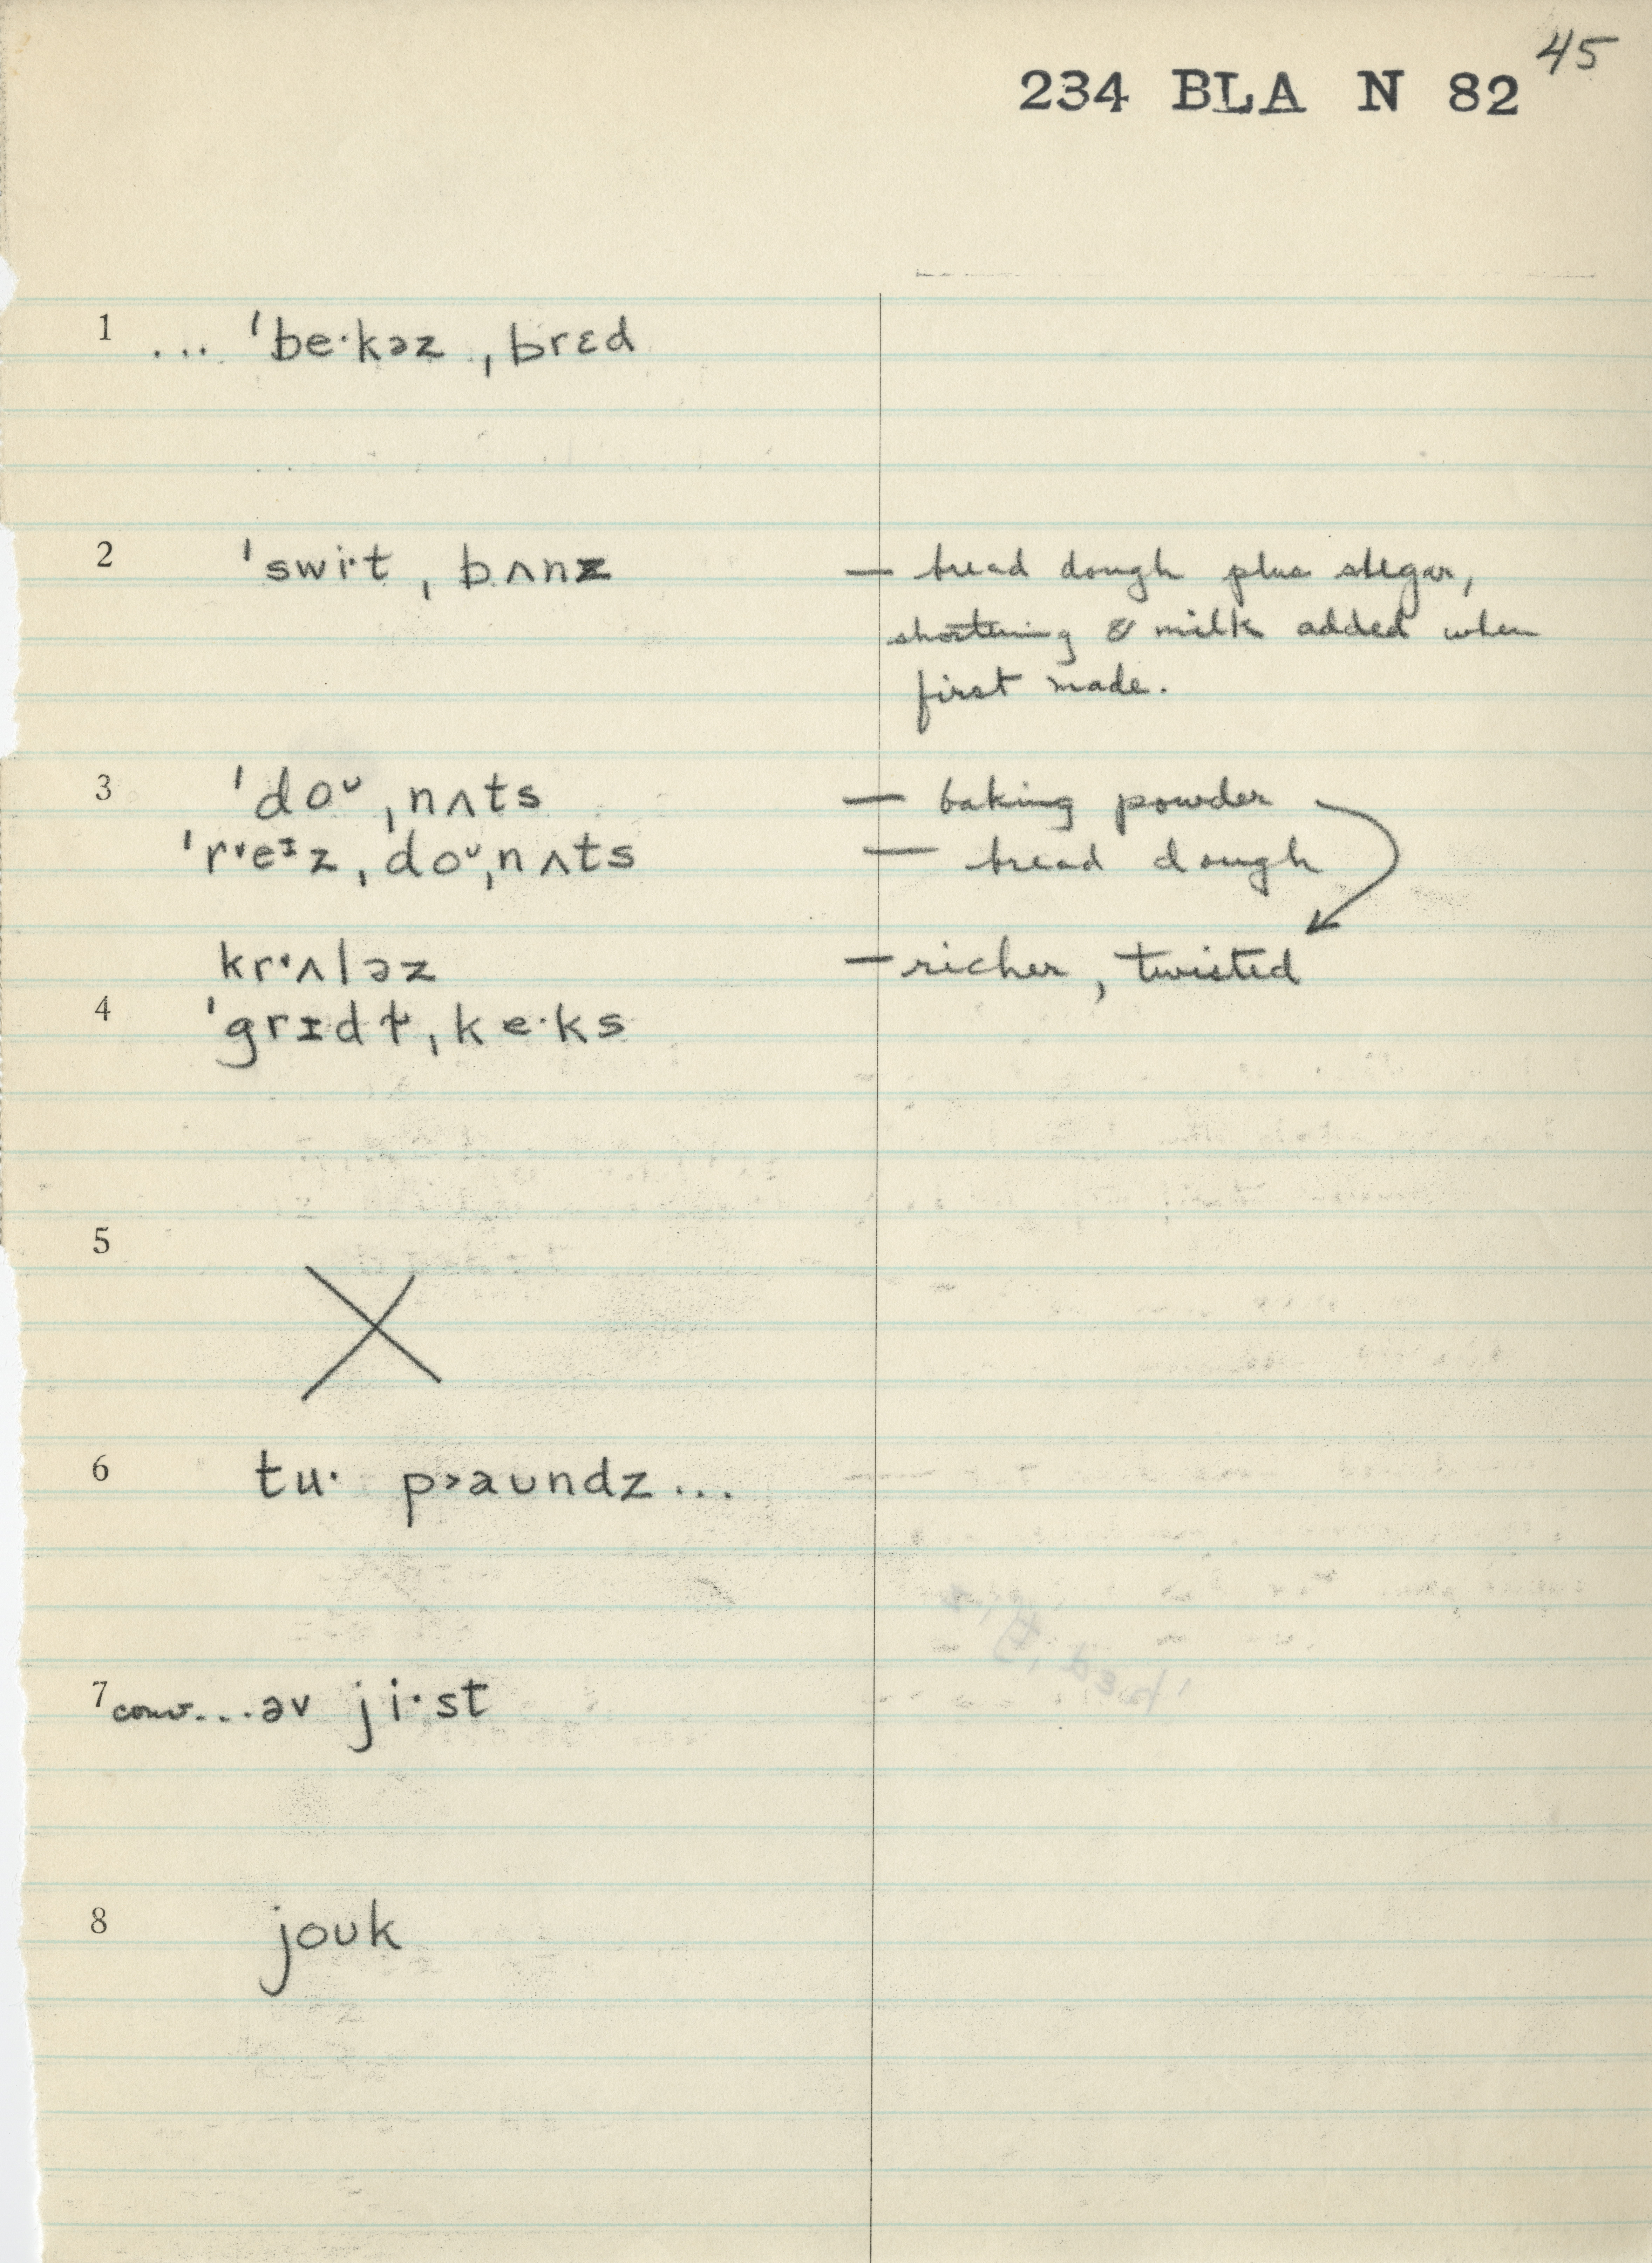 45
234 BLA N 82
1 ... ˈbe·kəz ˌbrɛd
2 ˈswi·t ˌbʌnz — bread dough plus sugar,
shortening & milk added when
first made.
3 ˈdoᶷ ˌnʌts — baking powder
ˈrᵛeᶦz ˌdoᶷˌnʌts — bread dough
kr·ʌləz — richer, twisted
4 ˈgrɪdɫ ˌke·ks
5
6 tu· p>aundz...
7 conv...əv ji·st
8 jouk